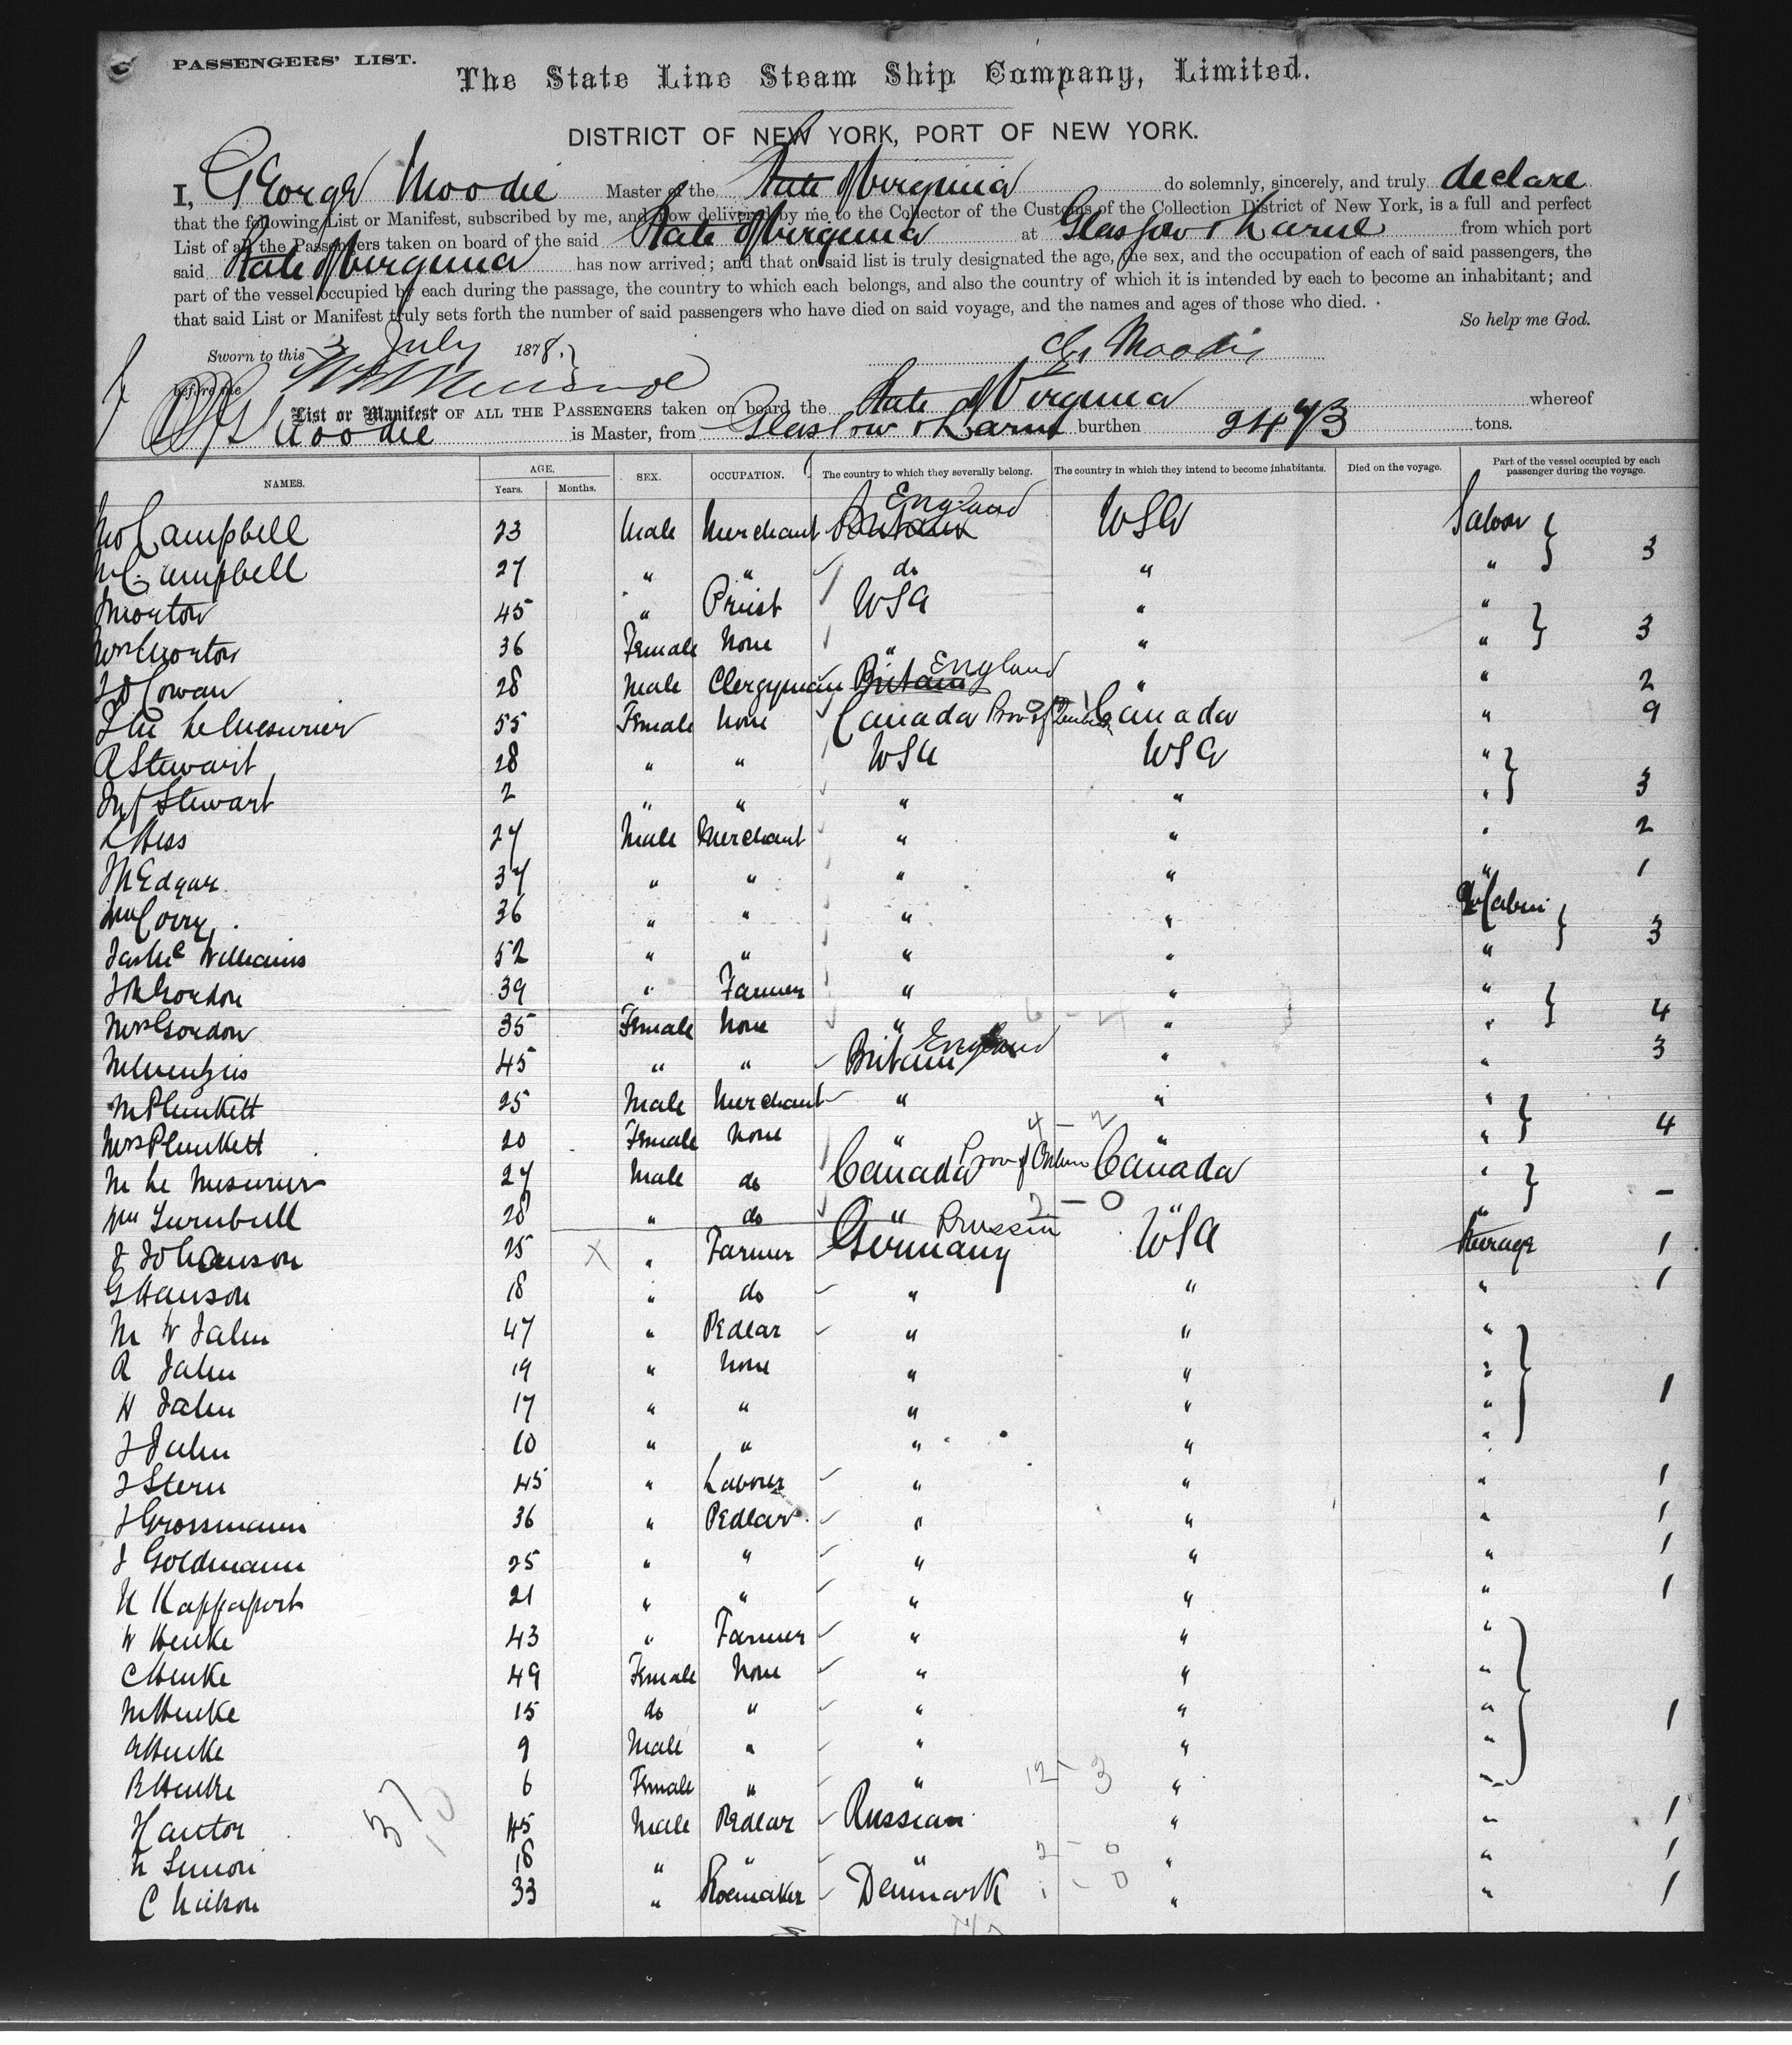 PASSENGERS' LIST.
The State Line Steam Ship Company, Limited.
DISTRICT OF NEW YORK, PORT OF NEW YORK.
I, George Moodie Master of the State of Virginia do solemnly, sincerely, and truly declare
that the following List or Manifest, subscribed by me, and now delivered by me to the Collector of the Customs of the Collection District of New York, is a full and perfect
List of all the Passengers taken on board of the said State of Virginia at Glasgow & Larne from which port
said State of Virginia has now arrived; and that on said list is truly designated the age, the sex, and the occupation of each of said passengers, the
part of the vessel occupied by each during the passage, the country to which each belongs, and also the country of which it is intended by each to become an inhabitant; and
that said List or Manifest truly sets forth the number of said passengers who have died on said voyage, and the names and ages of those who died.
So help me God.
Sworn to this 3 July 1878.
G. Moodie
before me
List or Manifest OF ALL THE PASSENGERS taken on board the State of Virginia whereof
G Moodie is Master, from Glasgow & Larne burthen 2473 tons.
NAMES. AGE. Years. Months. SEX. OCCUPATION. The country to which they severally belong. The country in which they intend to become inhabitants. Died on the voyage. Part of the vessel occupied by each passenger during the voyage.
Campbell 23 Male Merchant Britain England USA Saloon
Campbell 27 " " do " " 3
Morton 45 " Priest USA " "
Mrs Morton 36 Female None " " " 3
Cowan 28 Male Clergyman Britain England " " 2
Le Mesurier 55 Female None Canada Prov of Canada " 9
R Stewart 28 " " USA USA "
Inf Stewart 2 " " " " " 3
L Hess 27 Male Merchant " " " 2
Edgar 37 " " " " " 1
Wm Corry 36 " " " " Cabin
Jas Mc Williams 52 " " " " " 3
J R Gordon 39 " Farmer " " "
Mrs Gordon 35 Female None " 6 - 4 " " 4
M Menzies 45 " " Britain England " " 3
M Plunkett 25 Male Merchant " " "
Mrs Plunkett 20 Female None " 4 - 2 " " 4
M Le Mesurier 27 Male do Canada Prov of Canada "
Wm Turnbull 28 " do " 2 - 0 " " -
J Johanson 25 X " Farmer Germany Prussia USA Steerage 1
G Hanson 18 " do " " " 1
M W Jahn 47 " Pedlar " " "
R Jahn 19 " None " " "
H Jahn 17 " " " " " 1
J Jahn 10 " " " " "
J Stern 45 " Labourer " " " 1
J Grossmann 36 " Pedlar " " " 1
J Goldmann 25 " " " " " 1
N Kappaport 21 " " " " " 1
W Henke 43 " Farmer " " "
C Henke 49 Female None " " "
M Henke 15 do " " " " 1
A Henke 9 Male " " " "
B Henke 6 Female " " 12 - 3 " "
Kantor 45 Male Pedlar Russian " " 1
N Simon 18 " " " 2 - 0 " " 1
C Nielson 33 " Shoemaker Denmark 1 - 0 " " 1